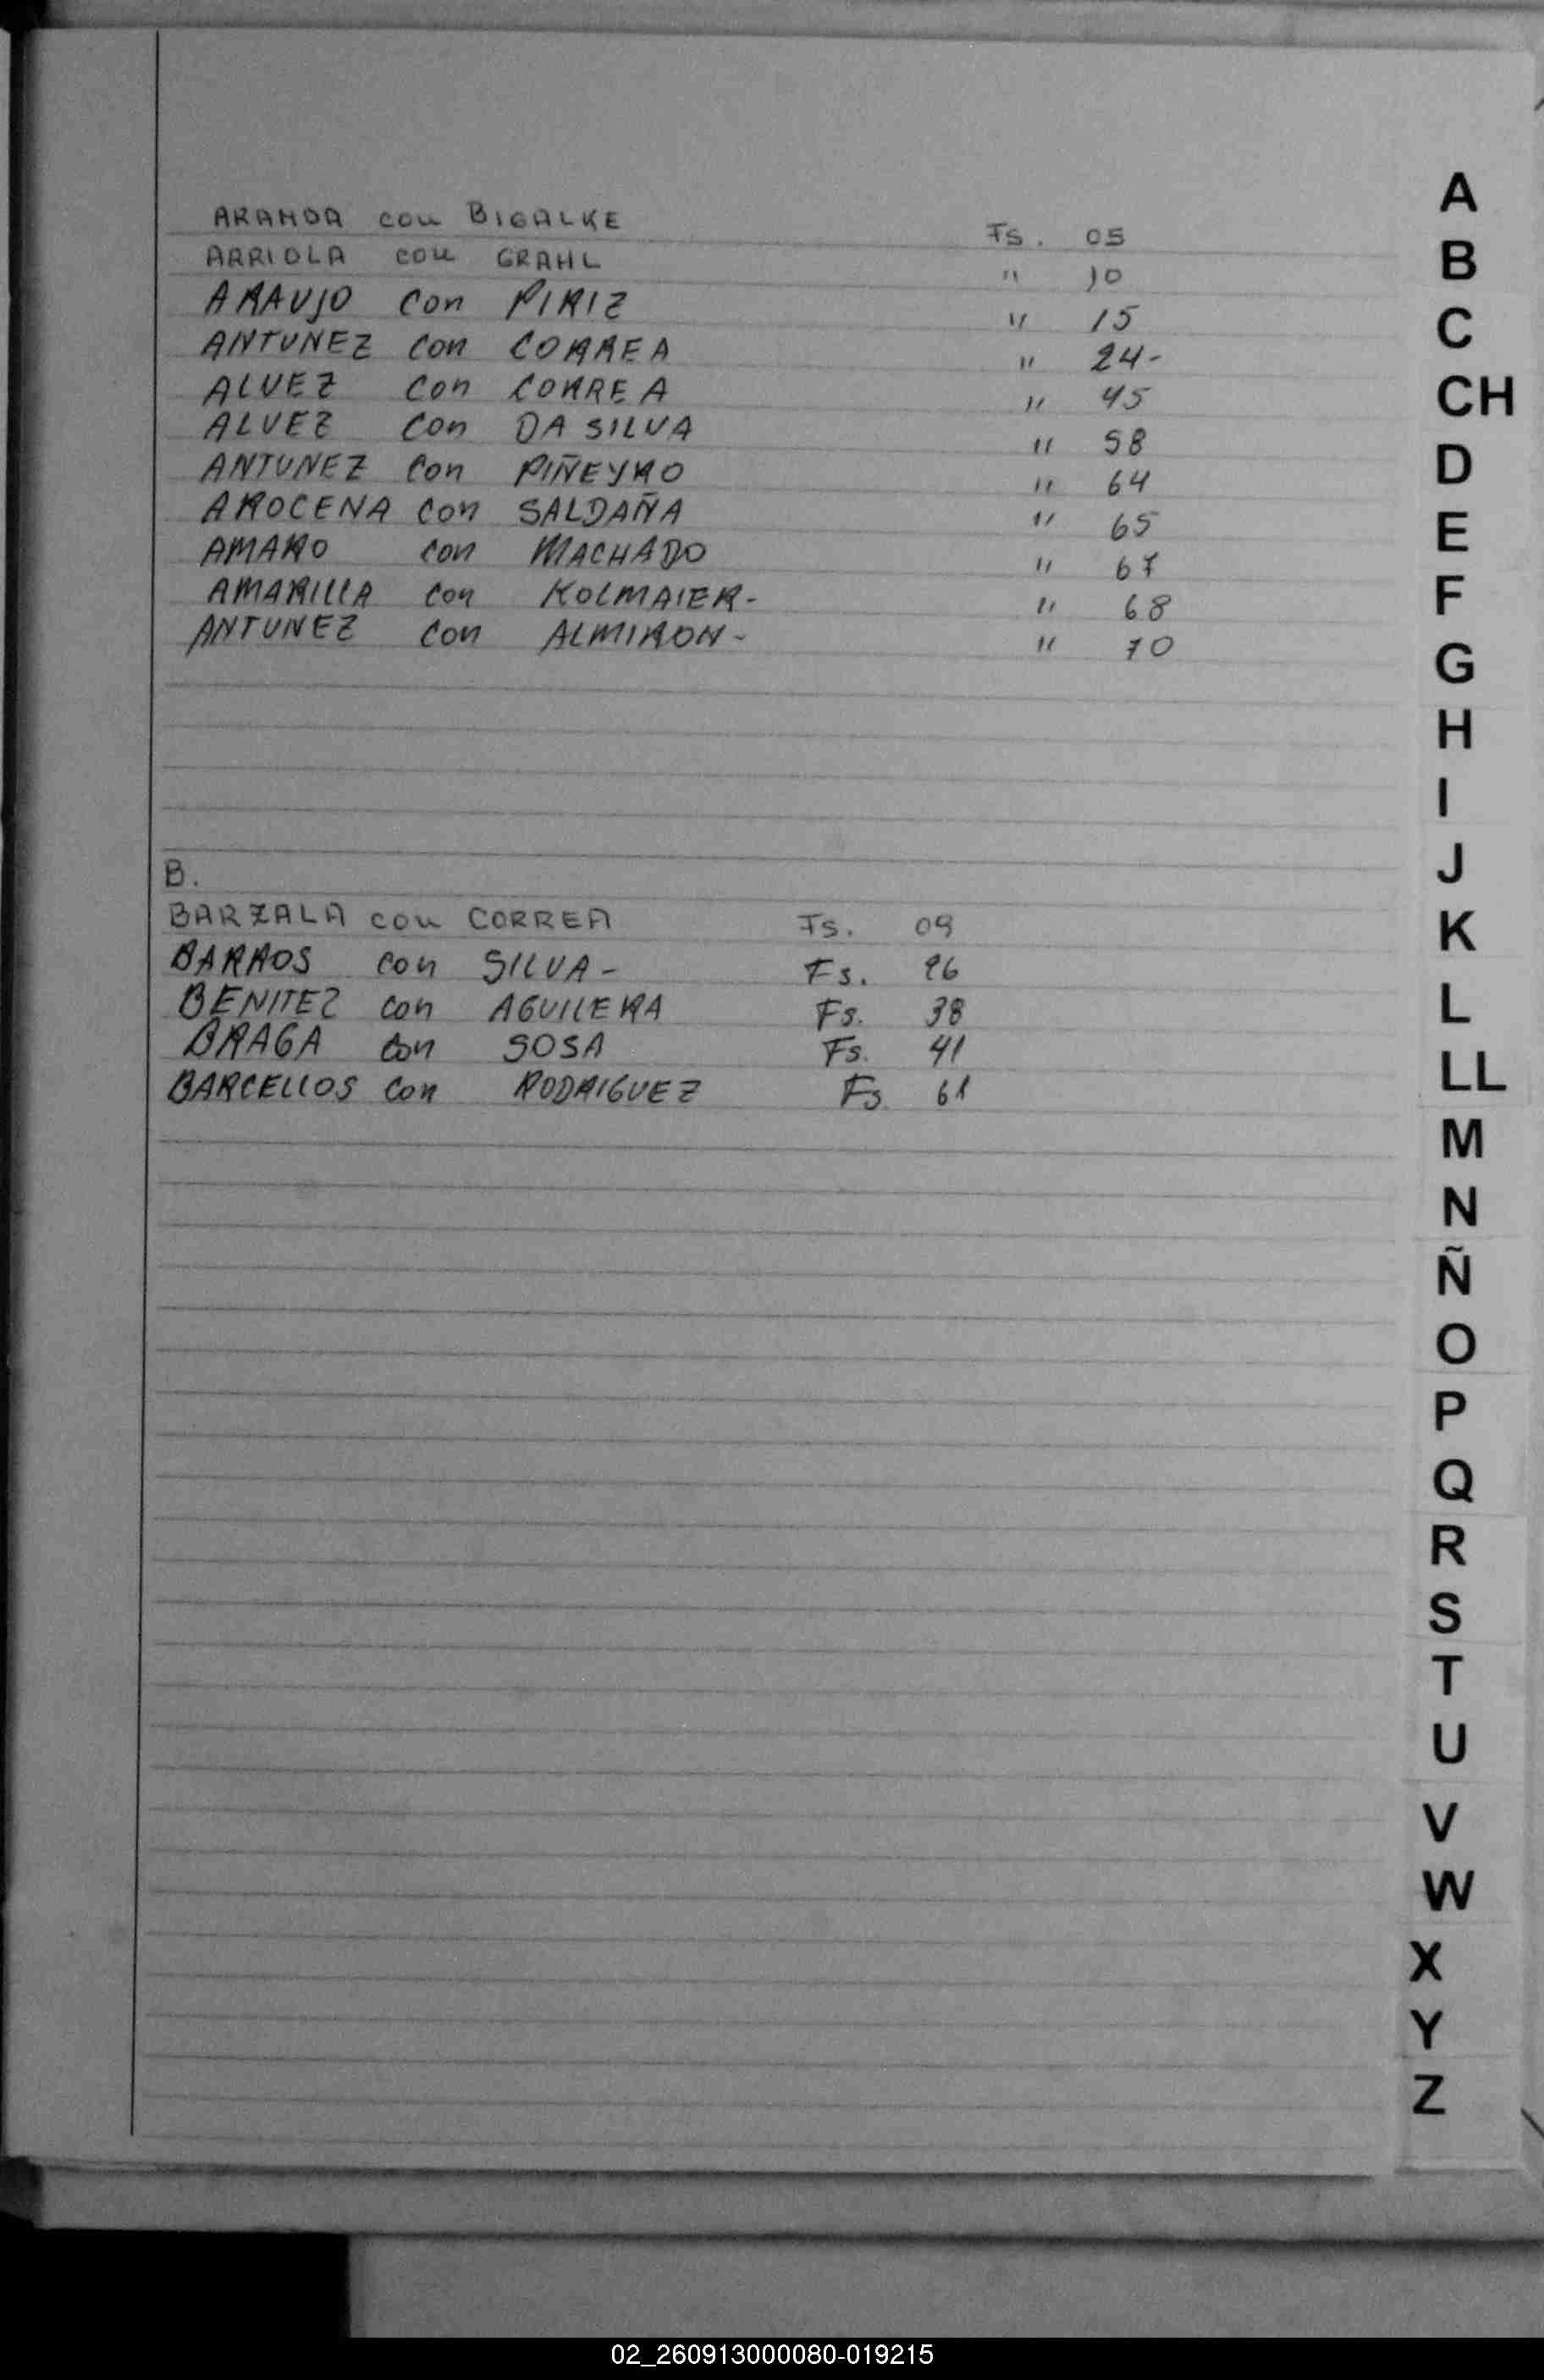 ARANDA con BIGALKE Fs. 05
ARRIOLA con GRAHL " 10
ARAUJO con PIRIZ " 15
ANTUNEZ con CORREA " 24-
ALVEZ con CORREA " 45
ALVEZ con DA SILVA " 58
ANTUNEZ con PIÑEYRO " 64
AROCENA con SALDAÑA " 65
AMARO con MACHADO " 67
AMARILLA con KOLMAIER- " 68
ANTUNEZ con ALMIRON- " 70
B.
BARZALA con CORREA Fs. 09
BARROS con SILVA- Fs.
BENITEZ con AGUILERA Fs. 38
BRAGA con SOSA Fs. 41
BARCELLOS con RODRIGUEZ Fs 61
A
B
C
CH
D
E
F
G
H
I
J
K
L
LL
M
N
Ñ
O
P
Q
R
S
T
U
V
W
X
Y
Z
02_260913000080-019215